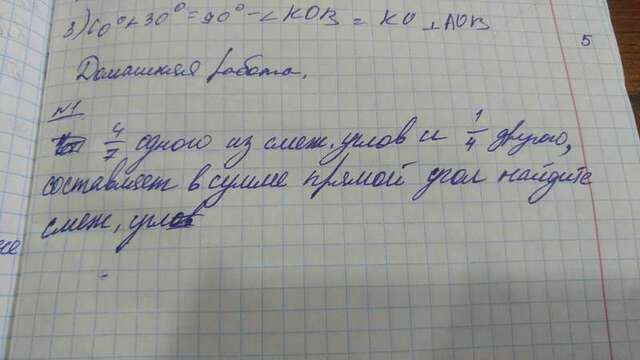 3) 60° + 30° = 90° - ∠KOB = KO ⊥ AOB
5
Домашняя работа.
№1
4/7 одного из смеж. углов и 1/4 другого,
составляет в сумме прямой угол найдите
смеж, углы